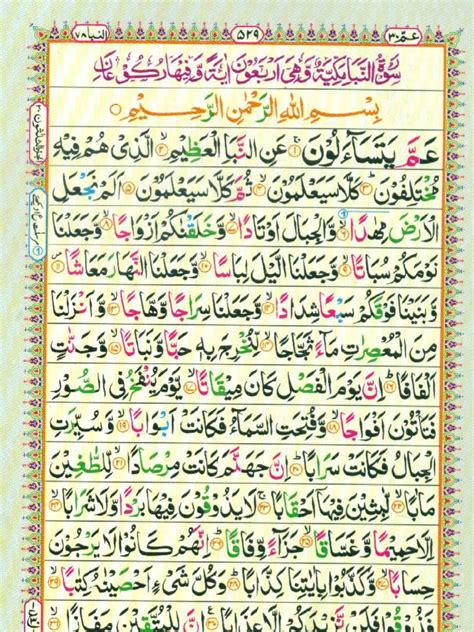 عمّ ٣٠
٥٢٩
النبا ٧٨
سُوْرَةُ النَّبَاِ مَكِّيَّةٌ وَّهِيَ اَرْبَعُوْنَ اٰيَةً وَّفِيْهَا رُكُوْعَانِ
بِسْمِ اللّٰهِ الرَّحْمٰنِ الرَّحِيْمِ
عَمَّ يَتَسَآءَلُوْنَ ۝١ عَنِ النَّبَاِ الْعَظِيْمِ ۝٢ الَّذِيْ هُمْ فِيْهِ
مُخْتَلِفُوْنَ ۝٣ كَلَّا سَيَعْلَمُوْنَ ۝٤ ثُمَّ كَلَّا سَيَعْلَمُوْنَ ۝٥ اَلَمْ نَجْعَلِ
الْاَرْضَ مِهٰدًا ۝٦ وَّالْجِبَالَ اَوْتَادًا ۝٧ وَّخَلَقْنٰكُمْ اَزْوَاجًا ۝٨ وَّجَعَلْنَا
نَوْمَكُمْ سُبَاتًا ۝٩ وَّجَعَلْنَا الَّيْلَ لِبَاسًا ۝١٠ وَّجَعَلْنَا النَّهَارَ مَعَاشًا ۝١١
وَّبَنَيْنَا فَوْقَكُمْ سَبْعًا شِدَادًا ۝١٢ وَّجَعَلْنَا سِرَاجًا وَّهَّاجًا ۝١٣ وَّاَنْزَلْنَا
مِنَ الْمُعْصِرٰتِ مَآءً ثَجَّاجًا ۝١٤ لِّنُخْرِجَ بِهٖ حَبًّا وَّنَبَاتًا ۝١٥ وَّجَنّٰتٍ
اَلْفَافًا ۝١٦ اِنَّ يَوْمَ الْفَصْلِ كَانَ مِيْقَاتًا ۝١٧ يَّوْمَ يُنْفَخُ فِي الصُّوْرِ
فَتَاْتُوْنَ اَفْوَاجًا ۝١٨ وَّفُتِحَتِ السَّمَآءُ فَكَانَتْ اَبْوَابًا ۝١٩ وَّسُيِّرَتِ
الْجِبَالُ فَكَانَتْ سَرَابًا ۝٢٠ اِنَّ جَهَنَّمَ كَانَتْ مِرْصَادًا ۝٢١ لِّلطّٰغِيْنَ
مَاٰبًا ۝٢٢ لّٰبِثِيْنَ فِيْهَآ اَحْقَابًا ۝٢٣ لَا يَذُوْقُوْنَ فِيْهَا بَرْدًا وَّلَا شَرَابًا ۝٢٤
اِلَّا حَمِيْمًا وَّغَسَّاقًا ۝٢٥ جَزَآءً وِّفَاقًا ۝٢٦ اِنَّهُمْ كَانُوْا لَا يَرْجُوْنَ
حِسَابًا ۝٢٧ وَّكَذَّبُوْا بِاٰيٰتِنَا كِذَّابًا ۝٢٨ وَكُلَّ شَيْءٍ اَحْصَيْنٰهُ كِتٰبًا ۝٢٩
فَذُوْقُوْا فَلَنْ نَّزِيْدَكُمْ اِلَّا عَذَابًا ۝٣٠ اِنَّ لِلْمُتَّقِيْنَ مَفَازًا ۝٣١